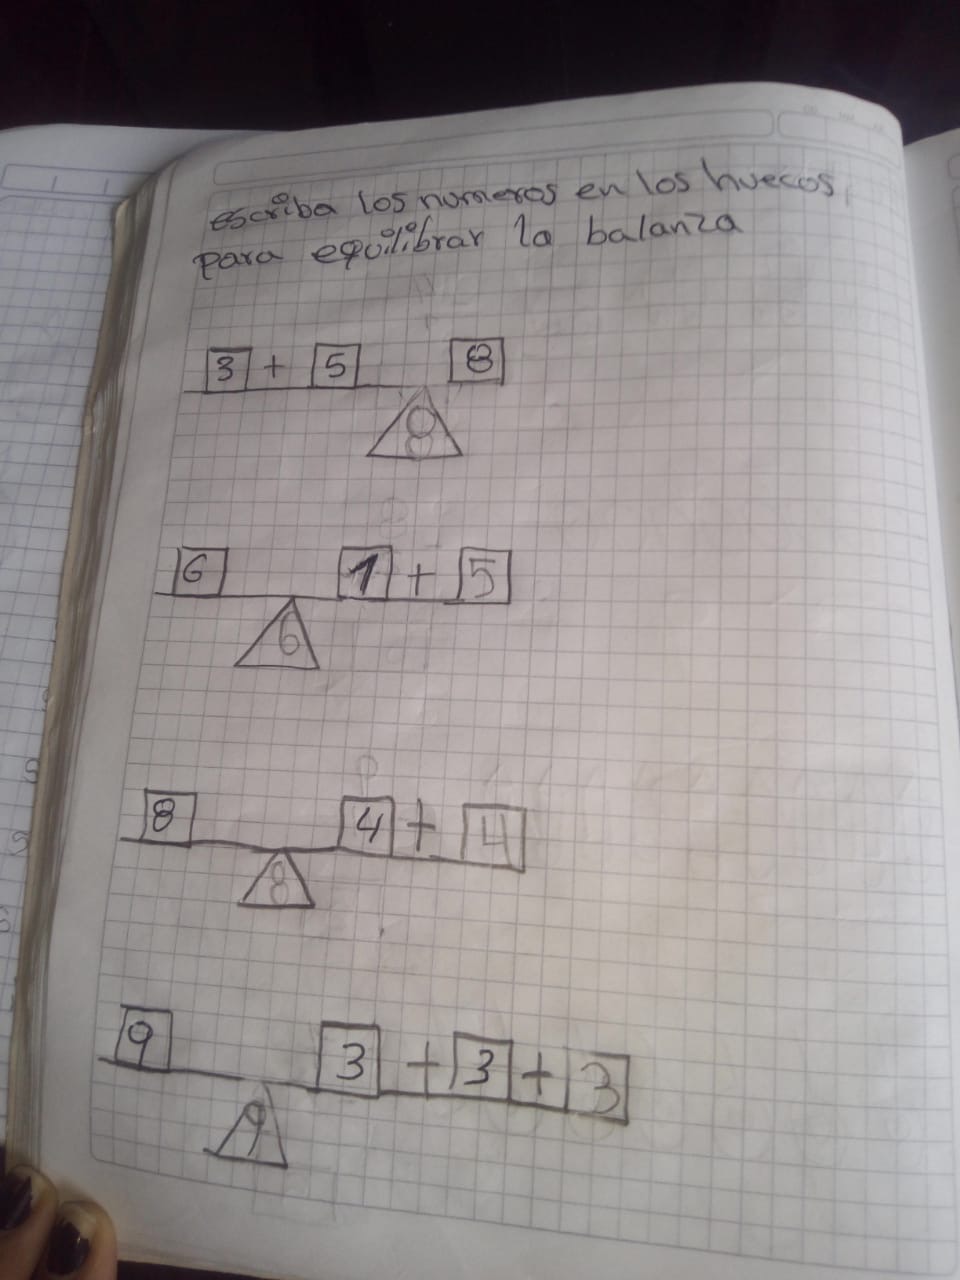 escriba los numeros en los huecos,
para equilibrar la balanza
3 + 5 8
8
6 1 + 5
6
8 4 + 4
8
9 3 + 3 + 3
9